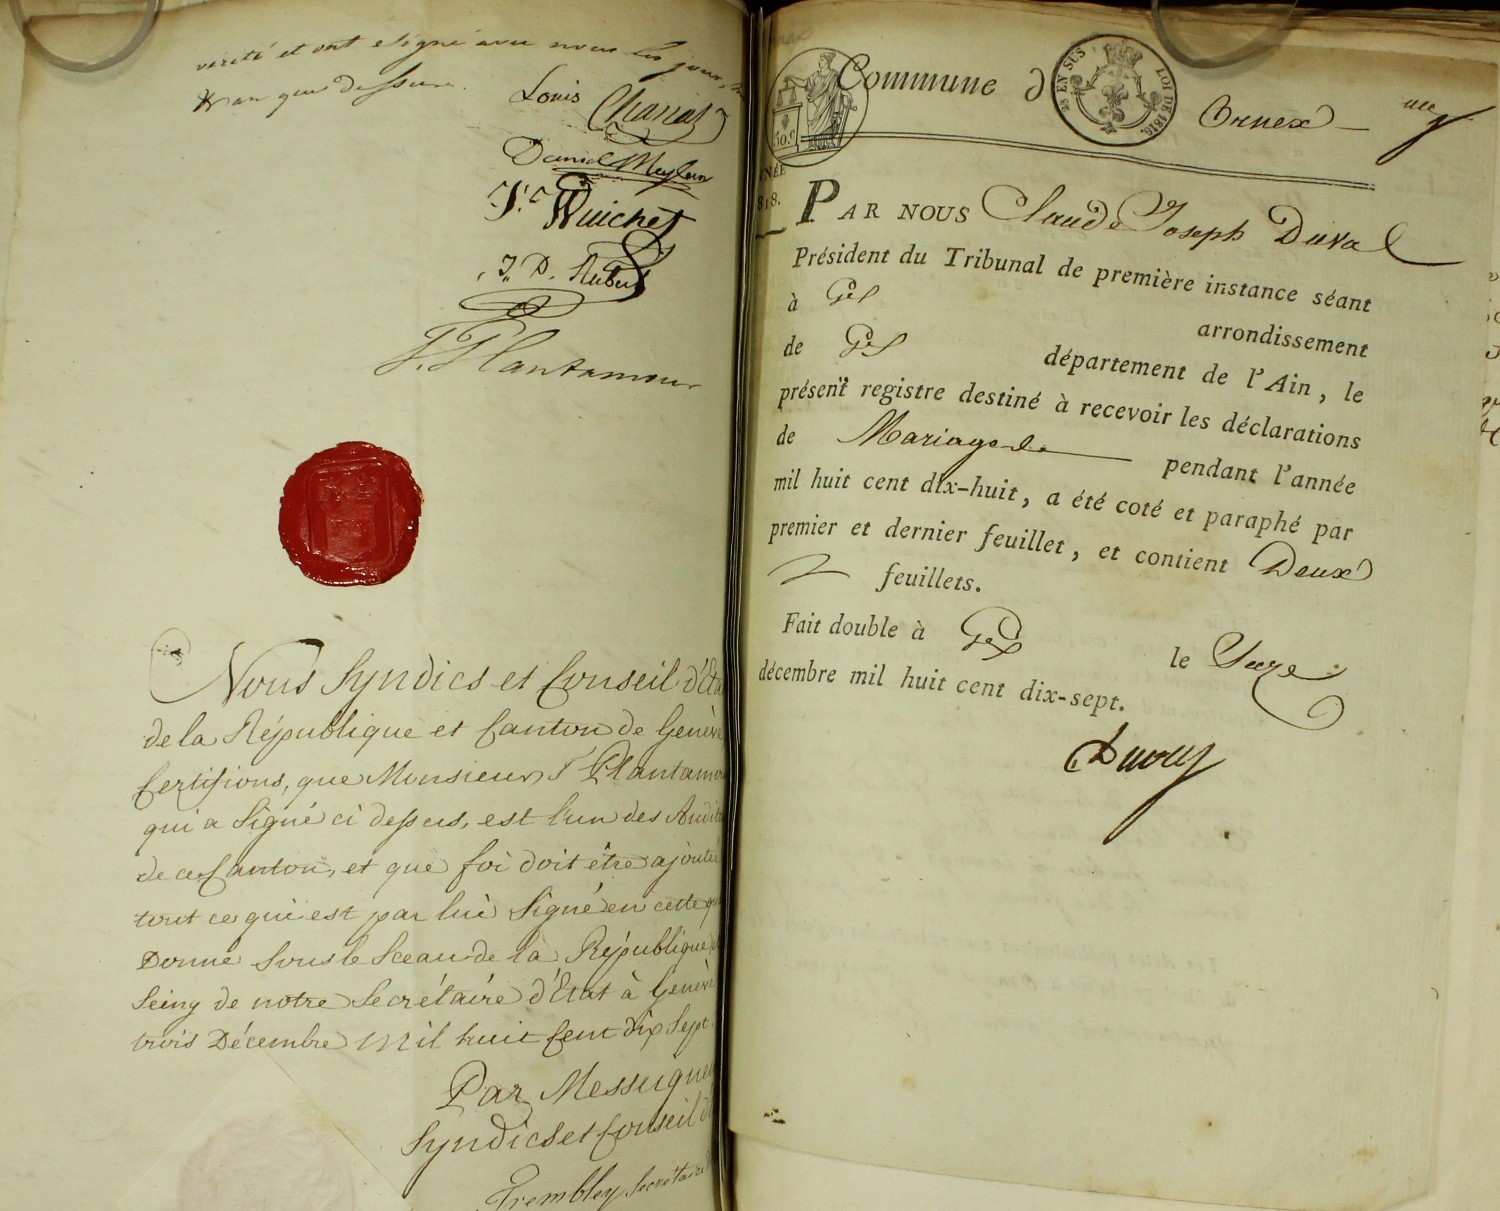 verité et ont signé avec nous les jour,
an que dessus.
Louis Charias
Daniel Meylan
Wuichet
J. D. Aubert
F. Plantamour
Nous Syndics et Conseil d'Eta
de la République et Canton de Genève
Certifions, que Monsieur F Plantamou
qui a Signé ci dessus, est l'un des Audite
de ce Canton, et que foi doit être ajoutée
tout ce qui est par lui Signé en cette qu
Donné sous le Sceau de la République
Seing de notre Secrétaire d'Etat à Genève
trois Décembre Mil huit Cent dix Sept.
Par Messeigne
Syndics et Conseil d
Trembley Secrétaire
Commune d Ornex
25 EN SUS LOI DE 1816
50.c
NÉE
818.
PAR NOUS Claude Joseph Duval
Président du Tribunal de première instance séant
à Gex arrondissement
de Gex département de l'Ain, le
présent registre destiné à recevoir les déclarations
de Mariage pendant l'année
mil huit cent dix-huit, a été coté et paraphé par
premier et dernier feuillet, et contient Deux
2 feuillets.
Fait double à Gex le Seize
décembre mil huit cent dix-sept.
Duval